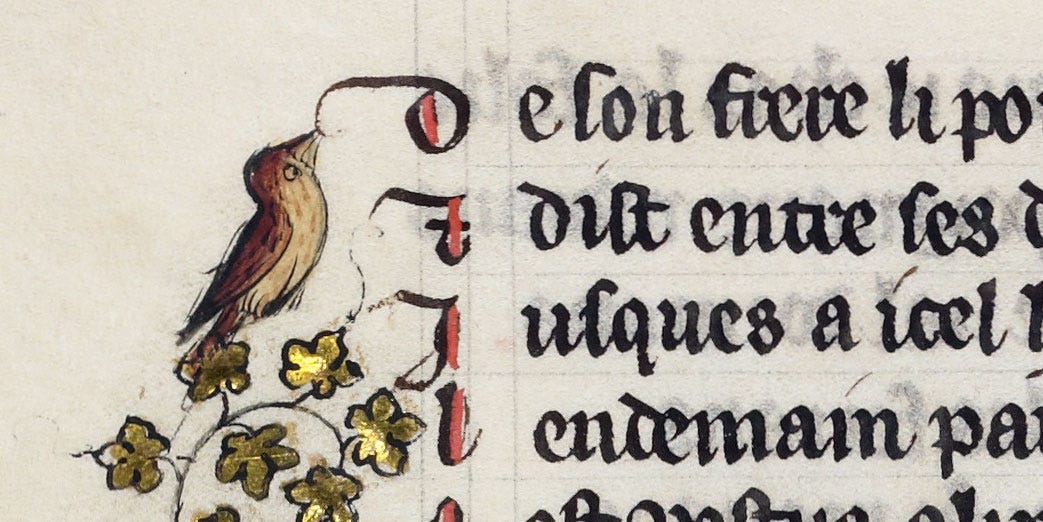 D e son frere li po
Z dist entre ses d
J usques a icel
L endemain par